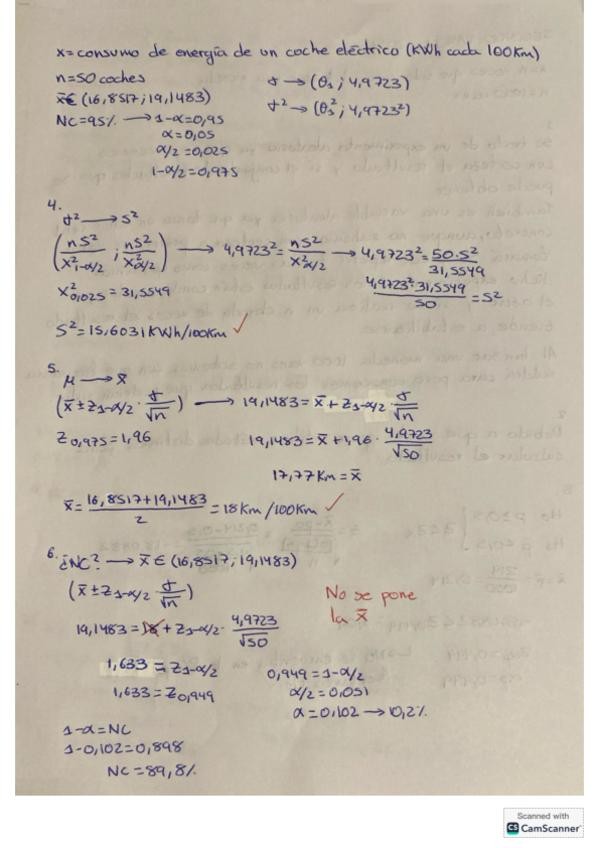 x=consumo de energía de un coche eléctrico (KWh cada 100Km)
n=50 coches
σ → (θ₁ ; 4,9723)
x̄∈ (16,8517 ; 19,1483)
σ² → (θ₁² ; 4,9723²)
NC=95% → 1-α=0,95
α=0,05
α/2=0,025
1-α/2=0,975
4.
σ² → S²
(nS²/X²₁₋α/₂ ; nS²/X²α/₂) → 4,9723² = nS²/X²α/₂ → 4,9723² = 50·S²/31,5549
X²₀,₀₂₅ = 31,5549
4,9723²·31,5549/50 = S²
S²=15,6031 KWh/100Km ✓
5.
μ → x̄
(x̄ ± Z₁₋α/₂ · σ/√n) → 19,1483 = x̄ + Z₁₋α/₂ · σ/√n
Z₀,₉₇₅ = 1,96
19,1483 = x̄ + 1,96 · 4,9723/√50
17,77 Km = x̄
x̄ = 16,8517+19,1483/2 = 18 Km /100Km ✓
6.
¿NC? → x̄ ∈ (16,8517 ; 19,1483)
(x̄ ± Z₁₋α/₂ · σ/√n)
No se pone
la x̄
19,1483 = 18 + Z₁₋α/₂ · 4,9723/√50
1,633 = Z₁₋α/₂
0,949 = 1-α/2
1,633 = Z₀,₉₄₉
α/2 = 0,051
α = 0,102 → 10,2%
1-α = NC
1-0,102 = 0,898
NC = 89,8%
Scanned with
CS CamScanner